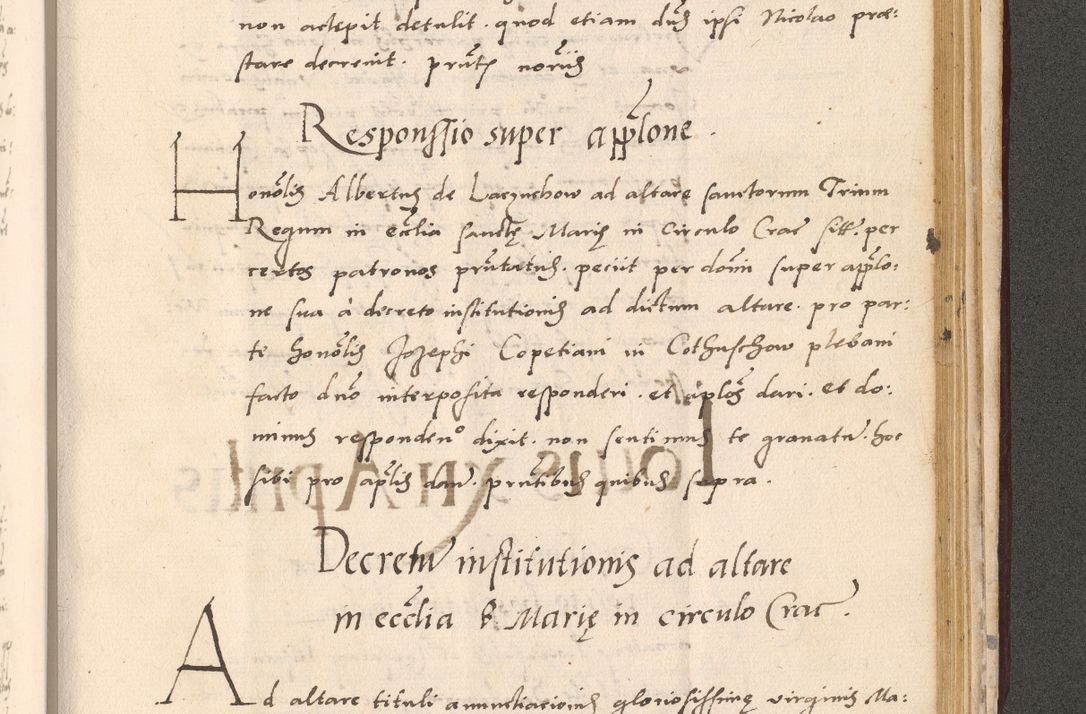 non accepit detulit. quod etiam dns ipsi Nicolao præ:
stare decrevit. prntes notarius
Responssio super applone.
Honolis Albertus de Laczuchow ad altare sanctorum Trium
Regum in ecclia sanctę Marię in Circulo Crac sitt. per
certos patronos prntatus. peciit per dominum super applo:
ne sua à decreto institutionis ad dictum altare. pro par:
te honolis Jozephi Copetiani in Cothuschow plebani
facto dno interposita responderi. et aplos dari. et do:
minus responden° dixit. non sentimus te gravatum. hoc
sibi pro aplis damus. prntibus quibus supra.
Decretum institutionis ad altare
in ecclia B Marię in circulo Crac.
Ad altare tituli annuntiacionis gloriosissimę virginis Ma: